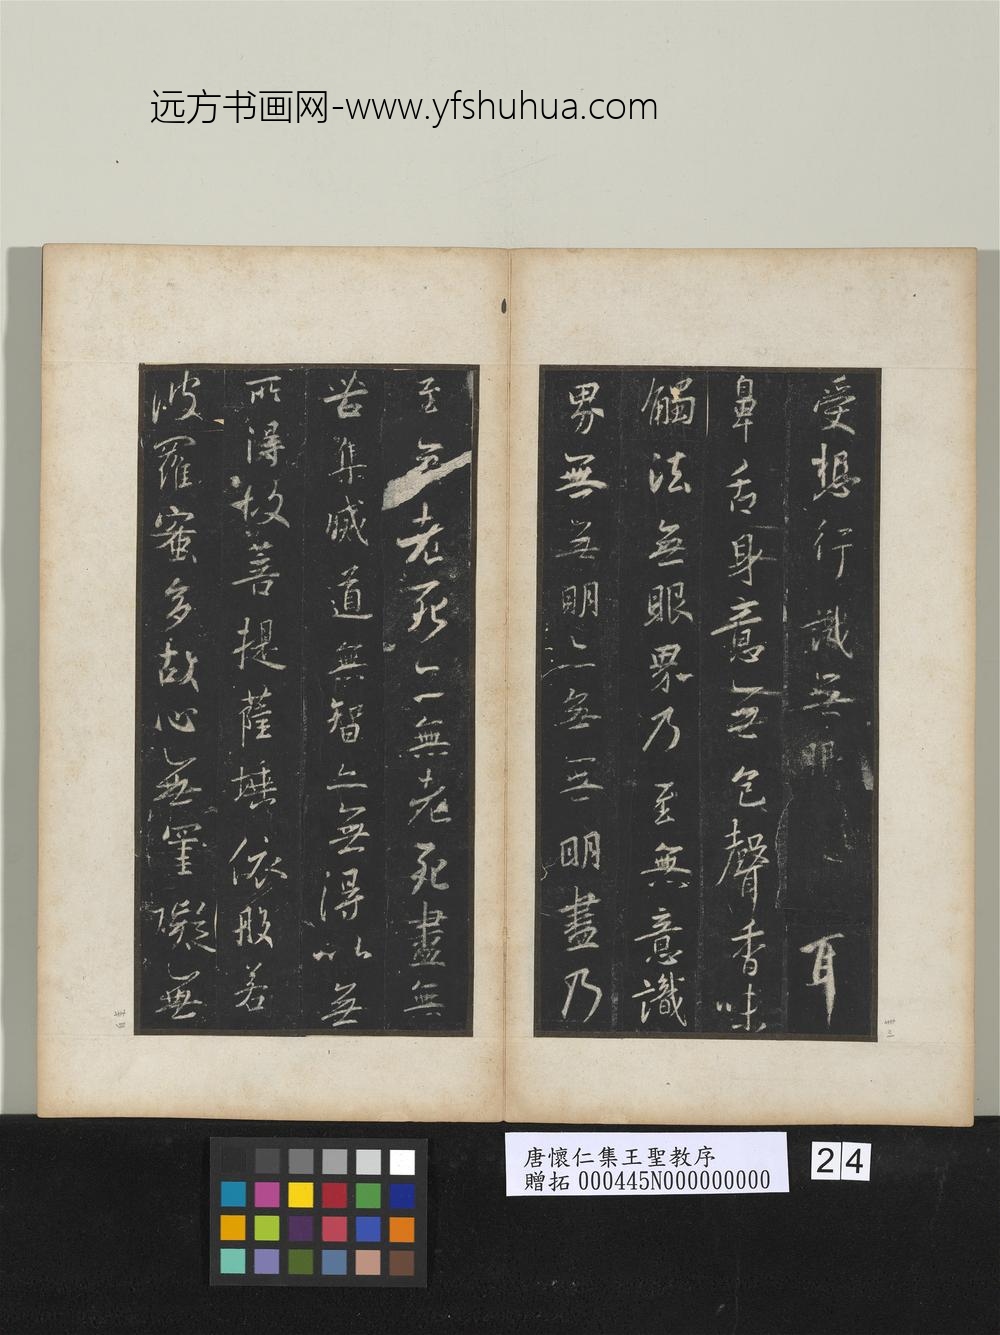 远方书画网-www.yfshuhua.com
受想行識無眼耳
鼻舌身意無色聲香味
觸法無眼界乃至無意識
界無無明亦無無明盡乃
至無老死亦無老死盡無
苦集滅道無智亦無得以無
所得故菩提薩埵依般若
波羅蜜多故心無罣礙無
唐懷仁集王聖教序
贈拓 000445N000000000
24